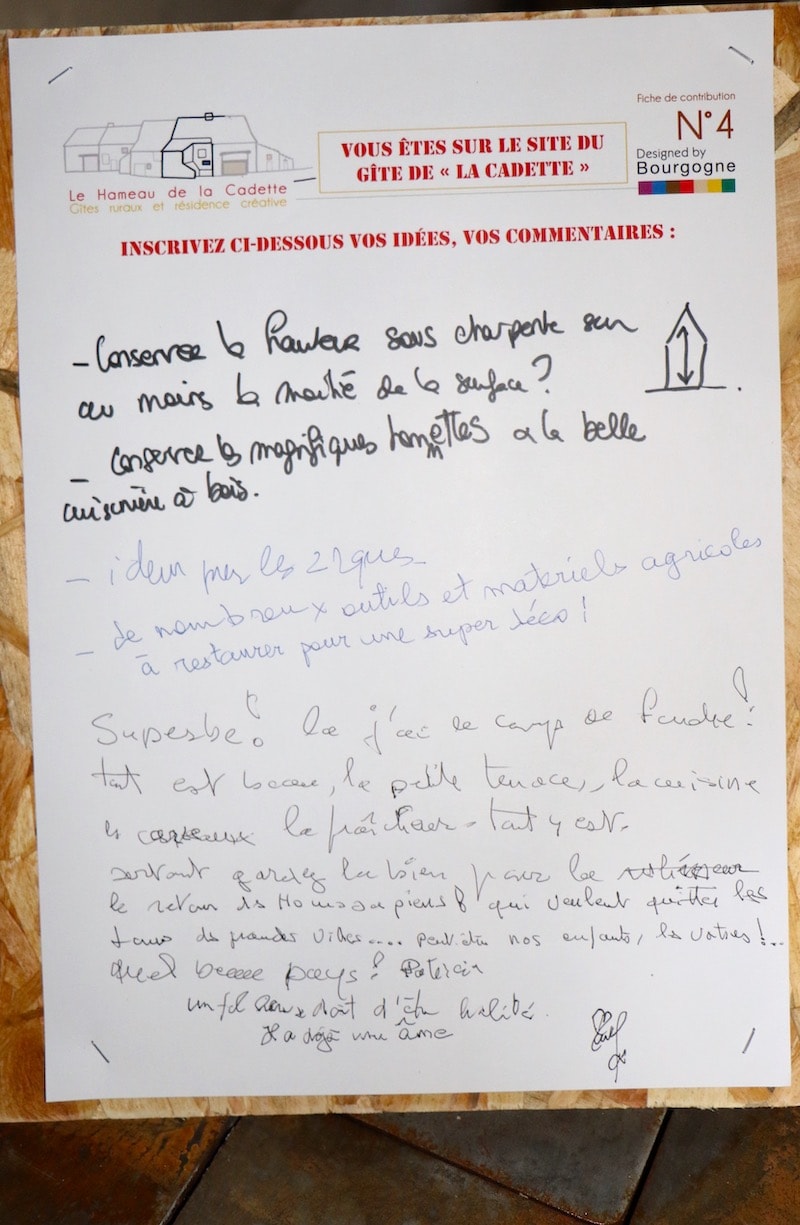 Le Hameau de la Cadette
Gîtes ruraux et résidence créative
VOUS ÊTES SUR LE SITE DU
GÎTE DE « LA CADETTE »
Fiche de contribution
N°4
Designed by
Bourgogne
INSCRIVEZ CI-DESSOUS VOS IDÉES, VOS COMMENTAIRES :
- Conserver la hauteur sous charpente sur
au moins la moitié de la surface ?
- conserver les magnifiques tommettes à la belle
cuisinière à bois.
- idem pour les
- de nombreux outils et matériels agricoles
à restaurer pour une super déco !
Superbe ! la j'ai le coup de foudre !
tout est beau, la petite terrasse, la cuisine
la fraîcheur - tout y est.
surtout gardez la bien pour le
le retour des Homosapiens qui veulent quitter les
tours des grandes villes.... peut être nos enfants, les votres !...
quel beau pays !
d'être habité.
Il a déjà une âme